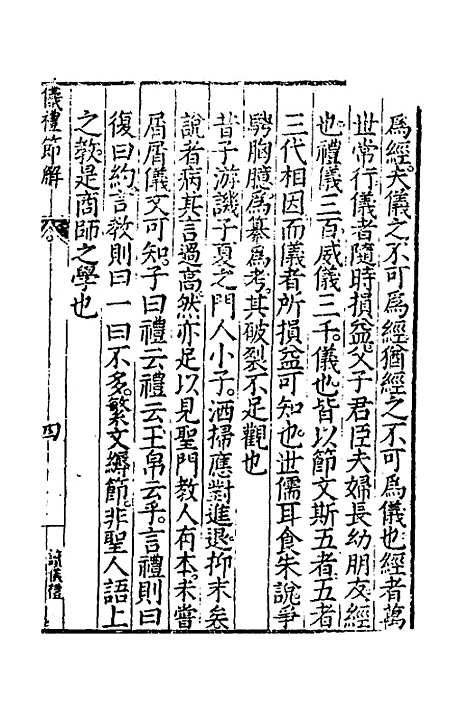 為經夫儀之不可為經猶經之不可為儀也經者萬
世常行儀者隨時損益父子君臣夫婦長幼朋友經
也禮儀三百威儀三千儀也皆以節文斯五者五者
三代相因而儀者所損益可知也世儒耳食朱說爭
騁胸臆為纂為考其破裂不足觀也
昔子游譏子夏之門人小子洒掃應對進退抑末矣
說者病其言過高然亦足以見聖門教人有本未嘗
屑屑儀文可知子曰禮云禮云玉帛云乎言禮則曰
復曰約言教則曰一曰不多繁文縟節非聖人語上
之教是商師之學也
儀禮節解
四
讀儀禮